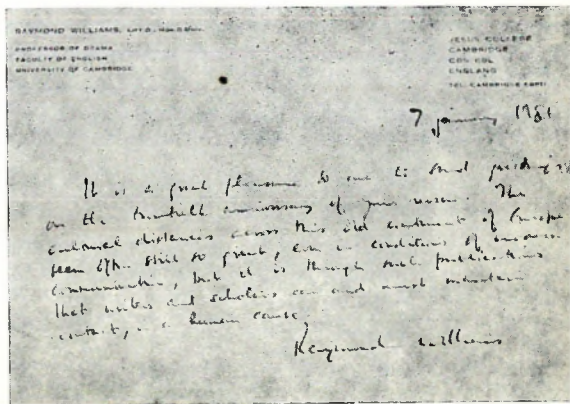 RAYMOND WILLIAMS, LITT.D.,
PROFESSOR OF DRAMA
FACULTY OF ENGLISH
UNIVERSITY OF CAMBRIDGE
JESUS COLLEGE
CAMBRIDGE
CB5 8BL
ENGLAND
TEL. CAMBRIDGE
7 January 1981
It is a great pleasure to me to send greetings
on the twentieth anniversary of your review. The
cultural distances across this old continent of Europe
seem often still so great, even in conditions of modern
communication, but it is through such publications
that writers and scholars can and must maintain
contact, in a human cause.
Raymond Williams